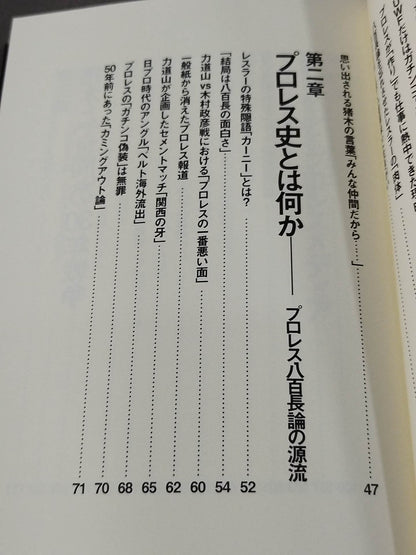 プロレスが「作り」でも仕事に熱中できた理由
思い出される猪木の言葉「みんな仲間だから……」……47
第二章
プロレス史とは何か――プロレス八百長論の源流
レスラーの特殊隠語「カーニー」とは?……52
「結局は八百長の面白さ」……54
力道山vs木村政彦戦における「プロレスの一番悪い面」……60
一般紙から消えたプロレス報道……62
力道山が企画したセメントマッチ「関西の牙」……65
日プロ時代のアングル「ベルト海外流出」……68
プロレスの「ガチンコ偽装」は無罪……70
50年前にあった「カミングアウト論」……71